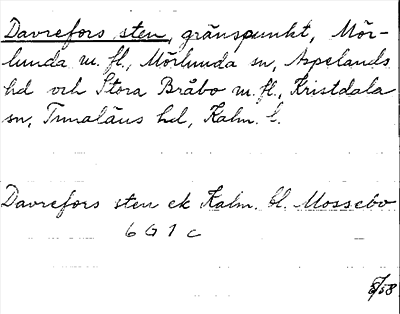 Davrefors sten, gränspunkt, Mör-
lunda m. fl., Mörlunda sn, Aspelands
hd och Stora Bråbo m. fl., Kristdala
sn, Tunaläns hd, Kalm. l.
Davrefors sten ek Kalm. bl. Mossebo
6 G 1 c